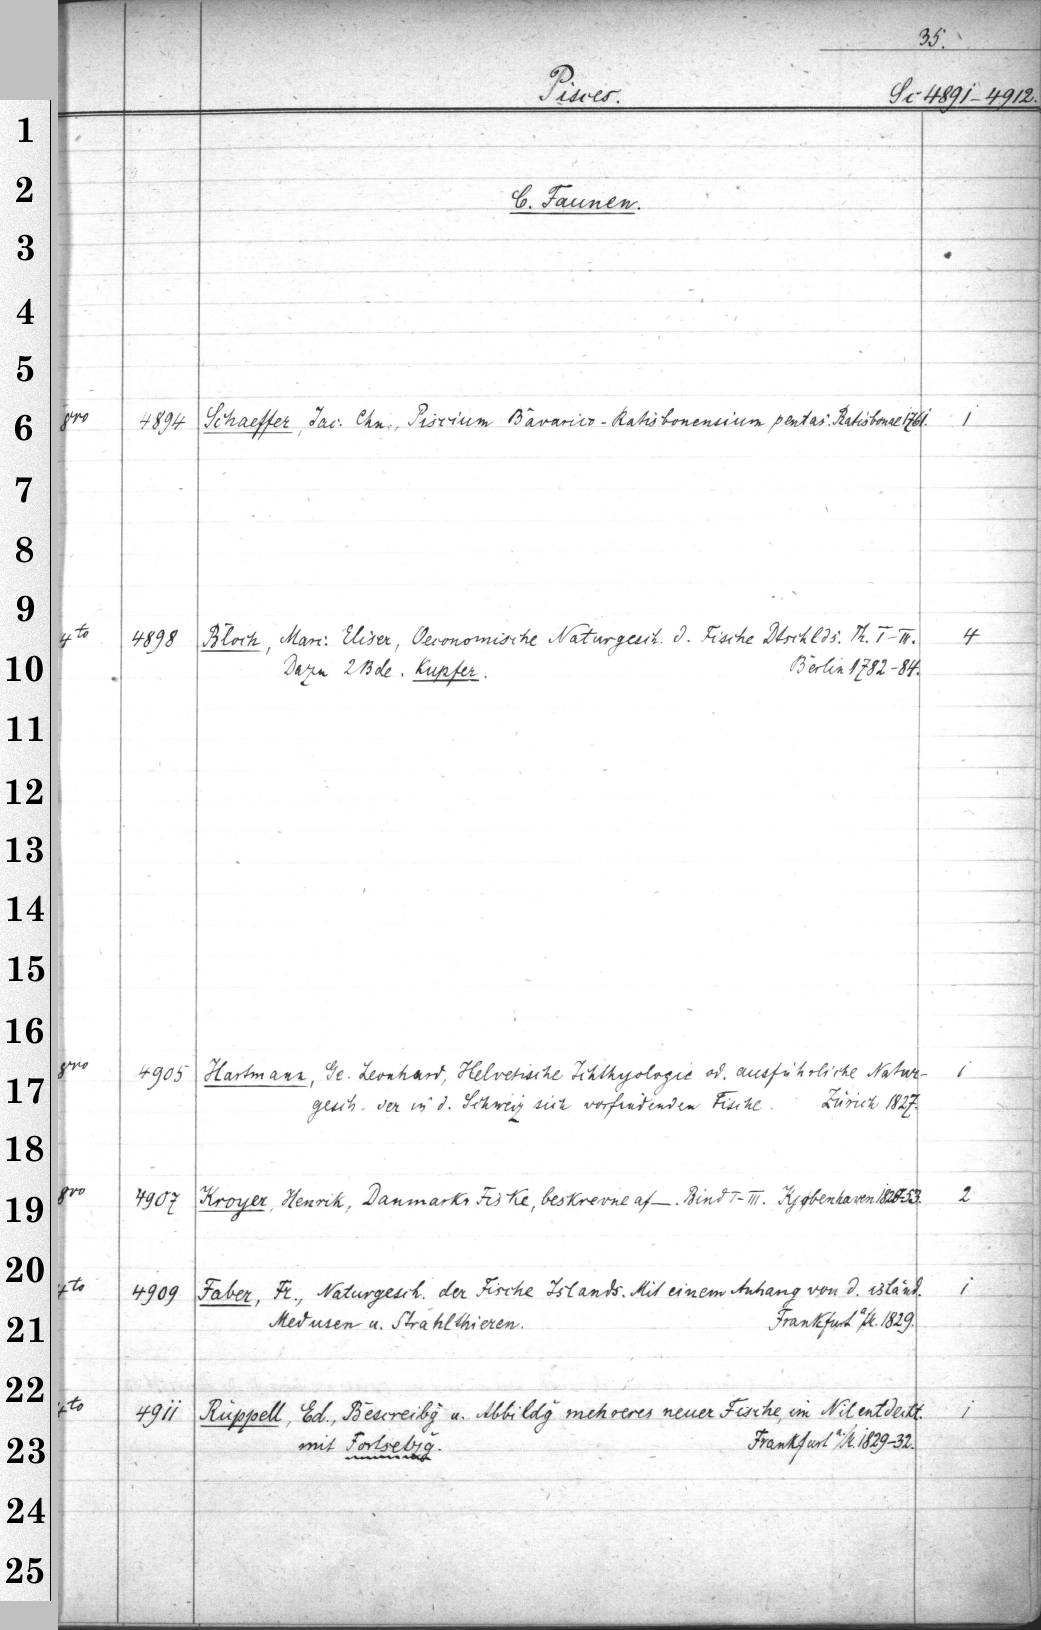 35.
Pisces.
Sc 4891-4912.
1
2
C. Faunen.
3
4
5
6
8vo 4894 Schaeffer, Jac. Chn., Piscium Bavarico-Ratisbonensium pentas. Ratisbonae 1761. 1
7
8
9
4to 4898 Bloch, Marc. Eliser, Oeconomische Naturgesch. d. Fische Dtschlds. Th. I-III. 4
10
Dazu 2 Bde. Kupfer. Berlin 1782-84.
11
12
13
14
15
16
8vo 4905 Hartmann, Ge. Leonhard, Helvetische Ichthyologie od. ausführliche Natur- 1
17
gesch. der in d. Schweiz sich vorfindenden Fische. Zürich 1827.
18
8vo 4907 Kroyer, Henrik, Danmarks Fiske, beskrevne af —. Bind I-III. Kjøbenhaven 2
19
20
4to 4909 Faber, Fr., Naturgesch. der Fische Islands. Mit einem Anhang von d. isländ. 1
21
Medusen u. Strahlthieren. Frankfurt a/M. 1829.
22
4to 4911 Rüppell, Ed., Bescreibg u. Abbildg mehreres neuer Fische, im Nil entdeckt. 1
23
mit Fortsebig. Frankfurt a/M. 1829-32.
24
25